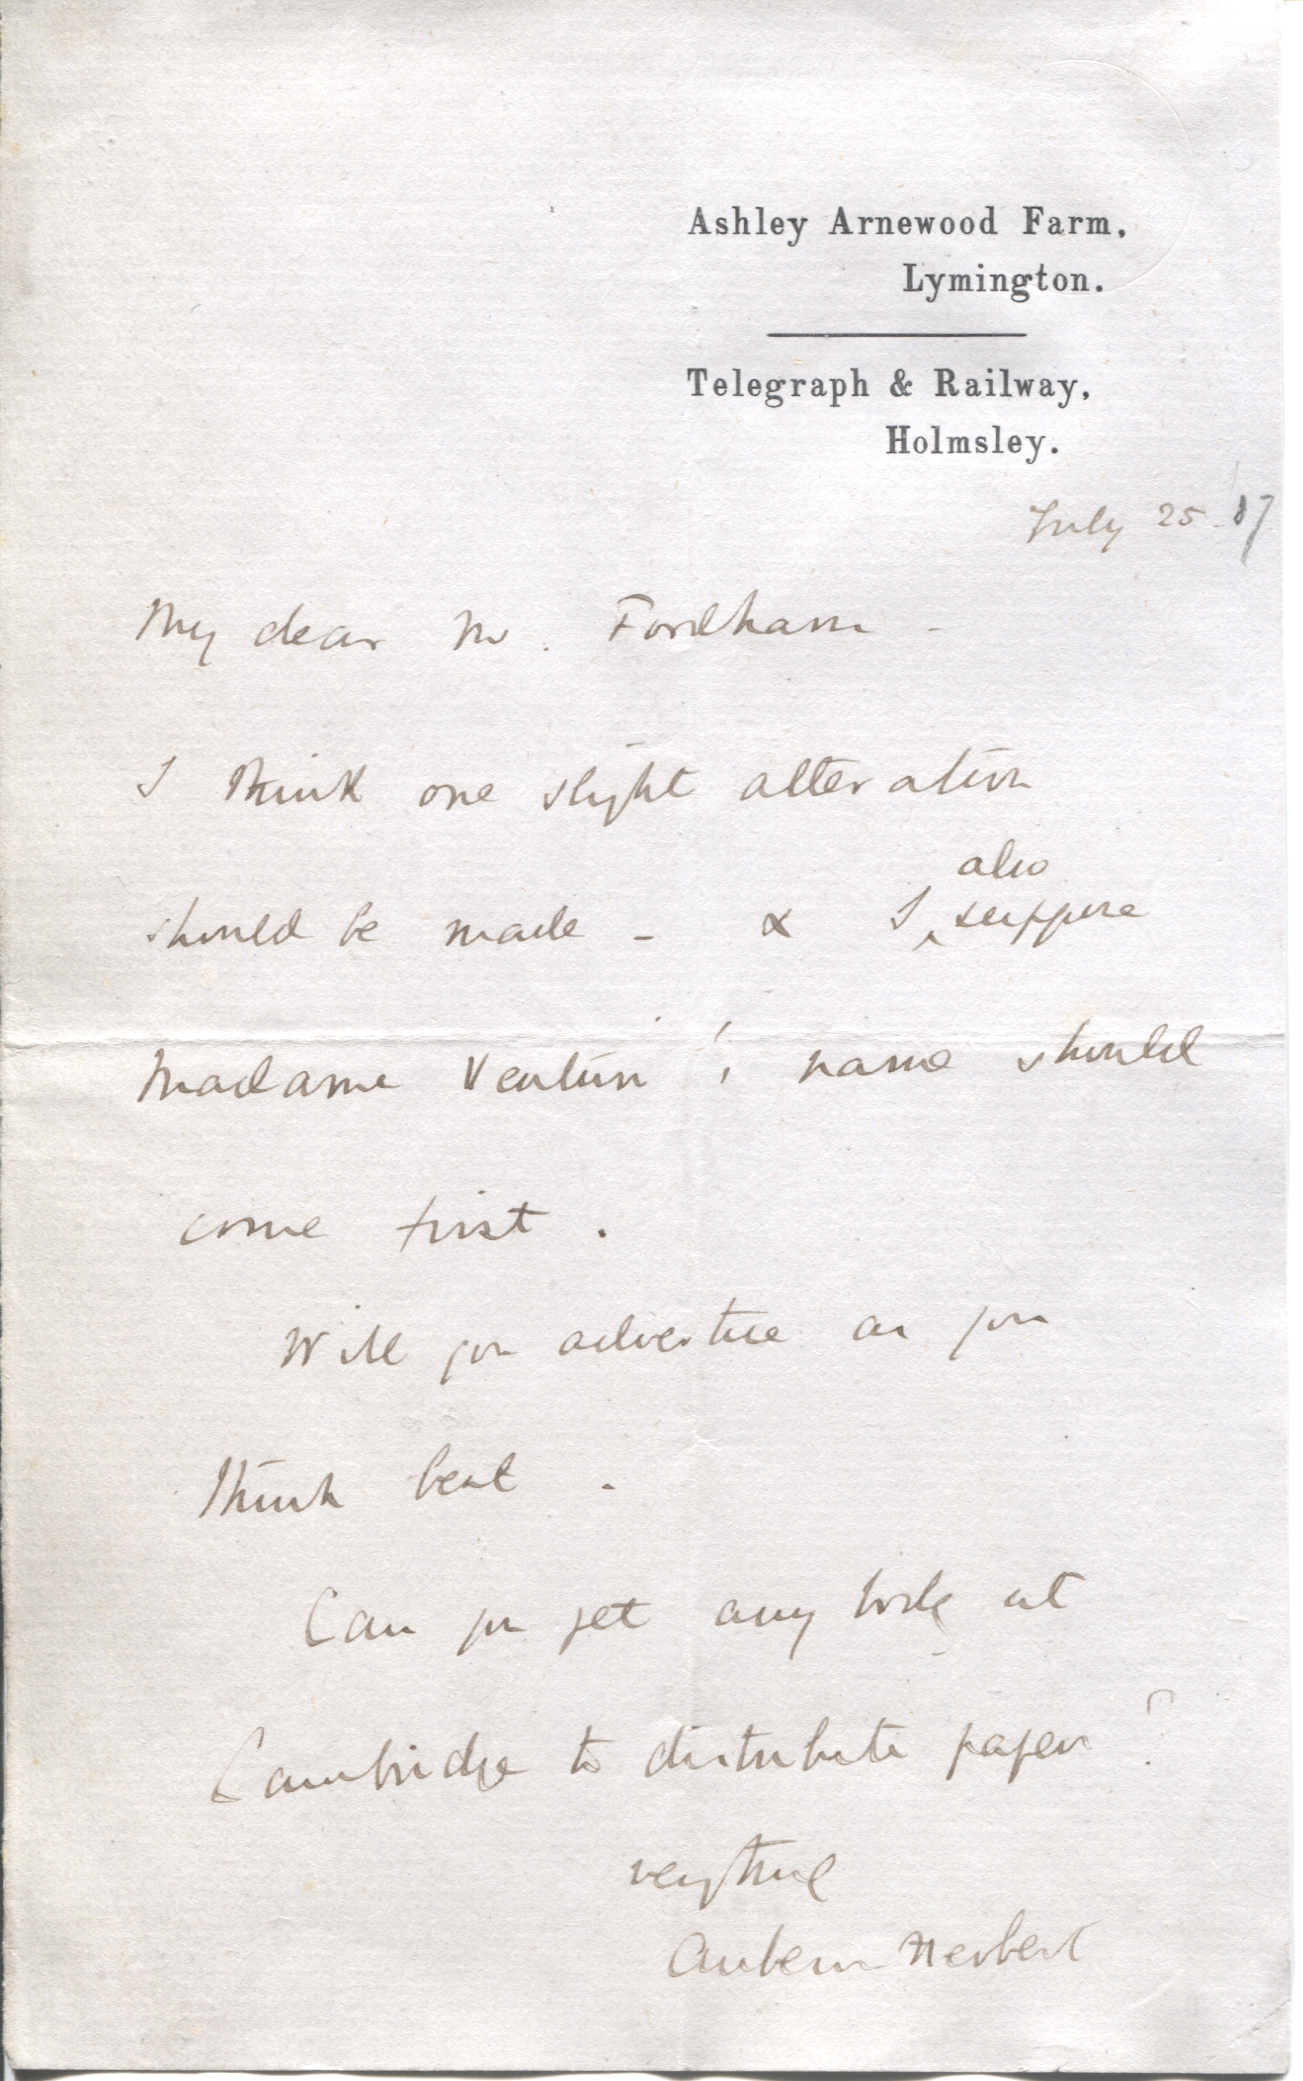 Ashley Arnewood Farm,
Lymington.
Telegraph & Railway,
Holmsley.
July 25. '87
My dear Mr. Fordham -
I think one slight alteration
also
should be made - & I ‸ suppose
Madame Venturi's name should
come first.
Will you advertise as you
think best.
Can you get any body at
Cambridge to distribute papers?
very truly
Auberon Herbert